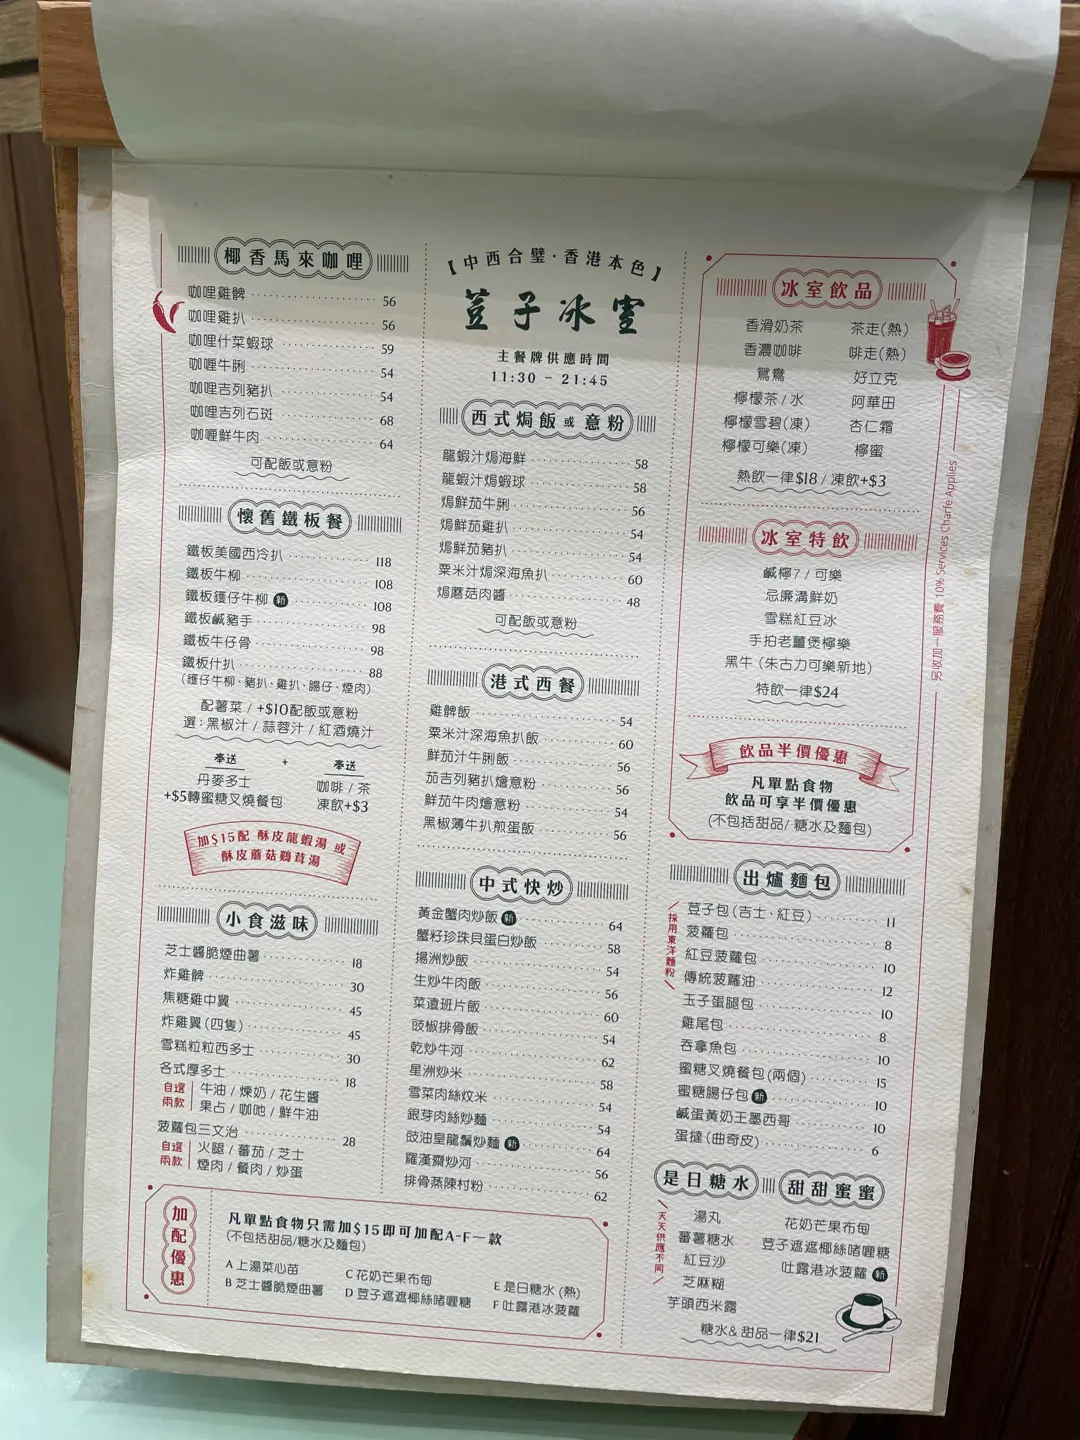 椰香馬來咖哩
咖哩雞髀 56
咖哩雞扒 56
咖哩什菜蝦球 59
咖喱牛脷 54
咖哩吉列豬扒 54
咖哩吉列石斑 68
咖喱鮮牛肉 64
可配飯或意粉
懷舊鐵板餐
鐵板美國西冷扒 118
鐵板牛柳 108
鐵板鑊仔牛柳 新 108
鐵板鹹豬手 98
鐵板牛仔骨 98
鐵板什扒 88
(鑊仔牛柳、豬扒、雞扒、腸仔、煙肉)
配薯菜 / +$10配飯或意粉
選：黑椒汁 / 蒜蓉汁 / 紅酒燒汁
奉送 + 奉送
丹麥多士 咖啡 / 茶
+$5轉蜜糖叉燒餐包 凍飲+$3
加$15配 酥皮龍蝦湯 或
酥皮蘑菇鷄茸湯
小食滋味
芝士醬脆煙曲薯 18
炸雞髀 30
焦糖雞中翼 45
炸雞翼 (四隻) 45
雪糕粒粒西多士 30
各式厚多士 18
自選兩款 牛油 / 煉奶 / 花生醬
果占 / 咖吔 / 鮮牛油
菠蘿包三文治 28
自選兩款 火腿 / 蕃茄 / 芝士
煙肉 / 餐肉 / 炒蛋
【中西合璧·香港本色】
荳子冰室
主餐牌供應時間
11:30 - 21:45
西式焗飯 或 意粉
龍蝦汁焗海鮮 58
龍蝦汁焗蝦球 58
焗鮮茄牛脷 56
焗鮮茄雞扒 54
焗鮮茄豬扒 54
粟米汁焗深海魚扒 60
焗蘑菇肉醬 48
可配飯或意粉
港式西餐
雞髀飯 54
粟米汁深海魚扒飯 60
鮮茄汁牛脷飯 56
茄吉列豬扒燴意粉 56
鮮茄牛肉燴意粉 54
黑椒薄牛扒煎蛋飯 56
中式快炒
黃金蟹肉炒飯 新 64
蟹籽珍珠貝蛋白炒飯 58
揚洲炒飯 54
生炒牛肉飯 56
菜遠班片飯 60
豉椒排骨飯 54
乾炒牛河 62
星洲炒米 58
雪菜肉絲炆米 54
銀芽肉絲炒麵 54
豉油皇龍鬚炒麵 新 64
羅漢齋炒河 56
排骨蒸陳村粉 62
冰室飲品
香滑奶茶 茶走(熱)
香濃咖啡 啡走(熱)
鴛鴦 好立克
檸檬茶 / 水 阿華田
檸檬雪碧(凍) 杏仁霜
檸檬可樂(凍) 檸蜜
熱飲一律$18 / 凍飲+$3
冰室特飲
鹹檸7 / 可樂
忌廉溝鮮奶
雪糕紅豆冰
手拍老薑煲檸樂
黑牛 (朱古力可樂新地)
特飲一律$24
飲品半價優惠
凡單點食物
飲品可享半價優惠
(不包括甜品/ 糖水及麵包)
另收加一服務費 10% Services Charfe Applies
出爐麵包
採用東洋麵粉
荳子包 (吉士、紅豆) 11
菠蘿包 8
紅豆菠蘿包 10
傳統菠蘿油 12
玉子蛋腿包 10
雞尾包 8
吞拿魚包 10
蜜糖叉燒餐包 (兩個) 15
蜜糖腸仔包 新 10
鹹蛋黃奶王墨西哥 10
蛋撻 (曲奇皮) 6
是日糖水
天天供應不同
湯丸
蕃薯糖水
紅豆沙
芝麻糊
芋頭西米露
甜甜蜜蜜
花奶芒果布甸
荳子遮遮椰絲啫喱糖
吐露港冰菠蘿 新
糖水& 甜品一律$21
加配優惠
凡單點食物只需加$15即可加配A-F一款
(不包括甜品/糖水及麵包)
A 上湯菜心苗 C 花奶芒果布甸 E 是日糖水 (熱)
B 芝士醬脆煙曲薯 D 荳子遮遮椰絲啫喱糖 F 吐露港冰菠蘿